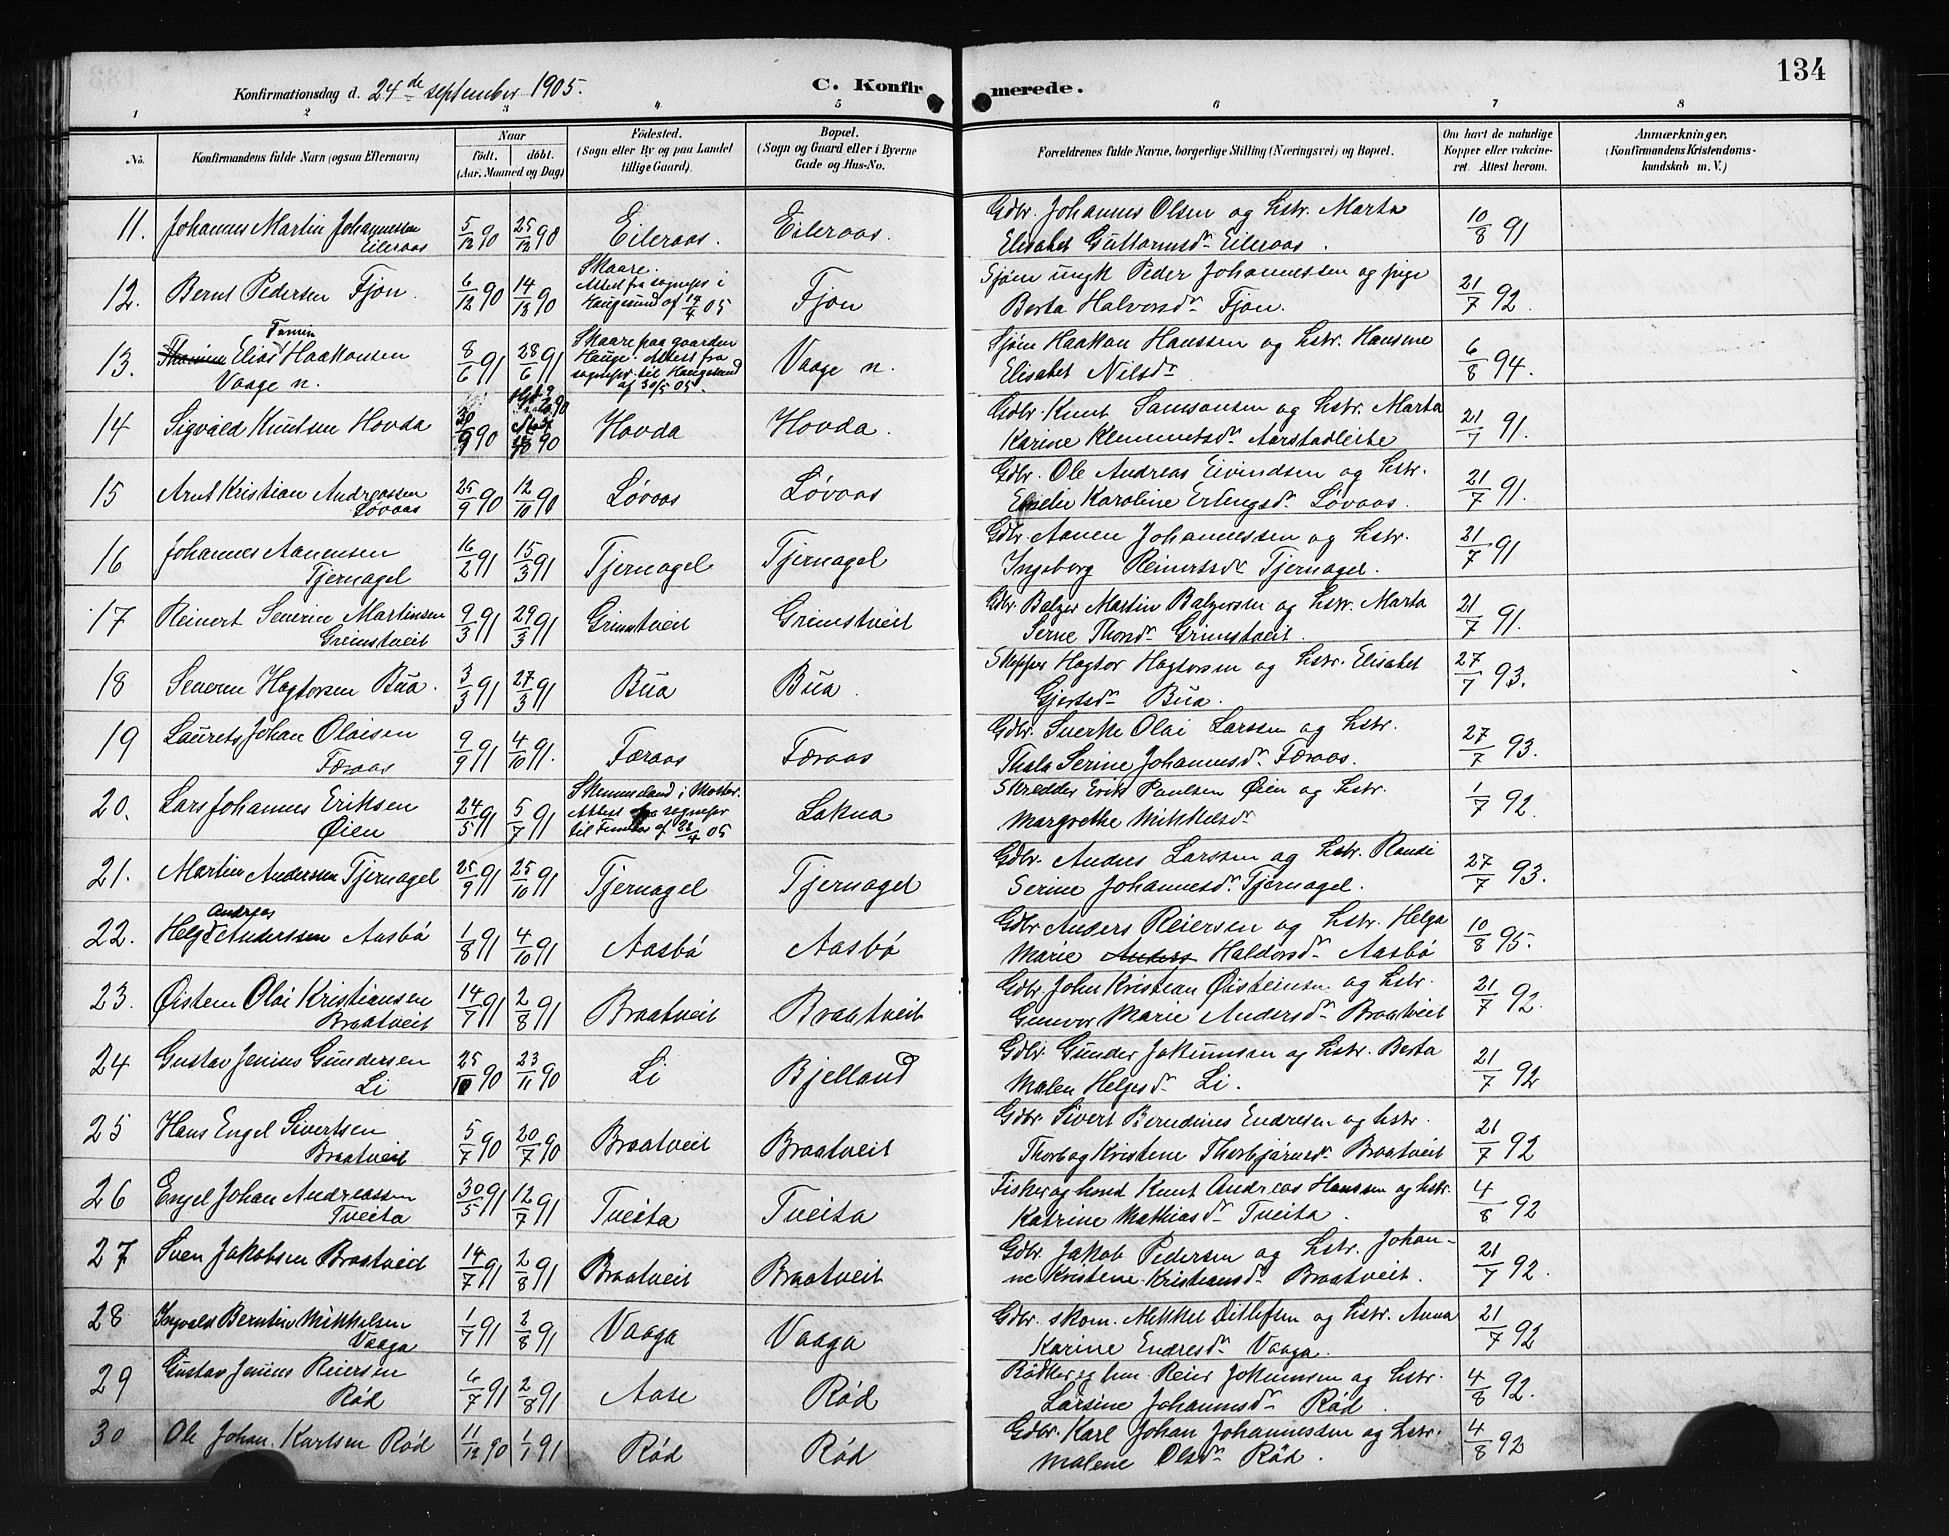 134
Konfirmationsdag d. 24de september 1905.
C. Konfirmerede.
1 2 3 4 5 6 7 8
No. Konfirmandens fulde Navn (ogsaa Efternavn)
Naar født, døbt. (Aar, Maaned og Dag)
Fødested. (Sogn eller By og paa Landet tillige Gaard).
Bopæl. (Sogn og Gaard eller i Byerne Gade og Hus-No.
Forældrenes fulde Navne, borgerlige Stilling (Næringsvei) og Bopæl.
Om havt de naturlige Kopper eller vakcineret. Attest herom.
Anmærkninger, (Konfirmandens Kristendomskundskab m. V.)
11. Johannes Martin Johannessen 5/12 90 25/12 90 Eileraas. Eileraas. Gdbr. Johannes Olsen og hstr. Marta 10/8 91
Eileraas Elisabet Guttormsdr Eileraas.
12. Bernt Pedersen Fjon. 6/12 90 14/12 90 Skaare. Attest fra sognepr i Haugesund af 14/4 05 Fjon Sjøm ungk Peder Johannessen og pige 21/7 92.
Berta Halvorsdr Fjon.
13. Elias Tomin Haakonsen 8/6 91 28/6 91 Skaare paa gaarden Hauge. Attest fra sognepr. til Haugesund af 30/5 05. Vaage n. Sjøm Haakon Hanssen og hstr. Hansine 6/8 94.
Vaage n. Elisabet Nilsdr
14 Sigvald Knutsen Hovda 30/9 90 90 Hovda Hovda. Gdbr. Knut Samsonsen og hstr. Marta 21/7 91.
Karine Klemmetsdr Aarstadleite
15 Arnt Kristian Andreassen 25/9 90 12/10 90 Løvaas Løvaas Gdbr. Ole Andreas Eivindsen og hstr. 21/7 91.
Løvaas Emelie Karoline Erlingsdr Løvaas.
16 Johannes Aanensen 16/2 91 15/3 91 Tjernagel Tjernagel Gdbr Aanen Johannessen og hstr. 21/7 91
Tjernagel Ingeborg Reinertsdr Tjernagel.
17 Reinert Severin Martinsen 9/3 91 29/3 91 Grimstveit Grimstveit Gdbr. Balzer Martin Balzersen og hstr. Marta 21/7 91.
Grimstveit Serne Thorsdr Grimstveit.
18 Severin Hagtorsen Bua. 3/3 91 27/3 91 Bua Bua. Skipper Hagtor Hagtorsen og hstr. Elisabet 27/7 93.
Gjertsdr Bua.
19 Laurits Johan Olaisen 9/9 91 4/10 91. Færaas Færaas Gdbr. Sverke Olai Larssen og hstr. 27/7 93.
Færaas Thala Serine Johannesdr Færaas.
20. Lars Johannes Eriksen 24/5 91 5/7 91 Skimmeland i Moster. Attest fra sognepr til Finnaas af 28/4 05 Lakna Skredder Erik Paulsen Øien og hstr. 1/7 92.
Øien Margrethe Mikkelsdr
21. Martin Andersen Tjernagel 25/9 91 25/10 91 Tjernagel Tjernagel Gdbr. Andres Larssen og hstr. Randi 27/7 93.
Serine Johannesdr Tjernagel.
22. Helge Andreas Anderssen Aasbø 1/8 91 4/10 91 Aasbø Aasbø Gdbr Anders Reiersen og hstr. Helga 10/8 95.
Marie Anders Haldorsdr Aasbø
23. Øistein Olai Kristiansen 14/7 91 2/8 91 Braatveit Braatveit Gdbr. John Kristian Øisteinsen og hstr. 21/7 92.
Braatveit Gunvor Marie Andersdr Braatveit
24 Gustav Jenius Gundersen 25/10 90 23/11 90 Li Bjelland Gdbr. Gunder Jokumsen og hstr. Berta 21/7 92
Li Malen Helgesdr Li.
25 Hans Engel Sivertsen 5/7 90 20/7 90 Braatveit Braatveit Gdbr Sivert Berndines Endresen og hstr. 21/7 92
Braatveit Thorbog Kristene Thorbjørnsdr Braatveit
26 Engel Johan Andreassen 30/5 91 12/7 91 Tveita Tveita Fisker og hmd Knut Andreas Hanssen og hstr. 4/8 92
Tveita Katrine Mathiasdr Tveita.
27 Sven Jakobsen Braatveit 14/7 91 2/8 91 Braatveit Braatveit Gdbr. Jakob Pedersen og hstr. Johan- 21/7 92.
ne Kristene Kristiansdr Braatveit.
28 Ingvald Berntin Mikkelsen 1/7 91 2/8 91 Vaaga Vaaga Gdbr. skom. Mikkel Ditlefsen og hstr. Anna 21/7 92
Vaaga Karine Endresdr Vaaga.
29 Gustav Jenius Reiersen 6/7 91 2/8 91 Aase Rød Reier Jokumsen og hstr. 4/8 92.
Rød Larsine Johannesdr Rød.
30 Ole Johan Karlsen Rød 11/12 90 1/1 91 Rød Rød Gdbr. Karl Johan Johannessen og hstr. 4/8 92
Malene Olsdr Rød.